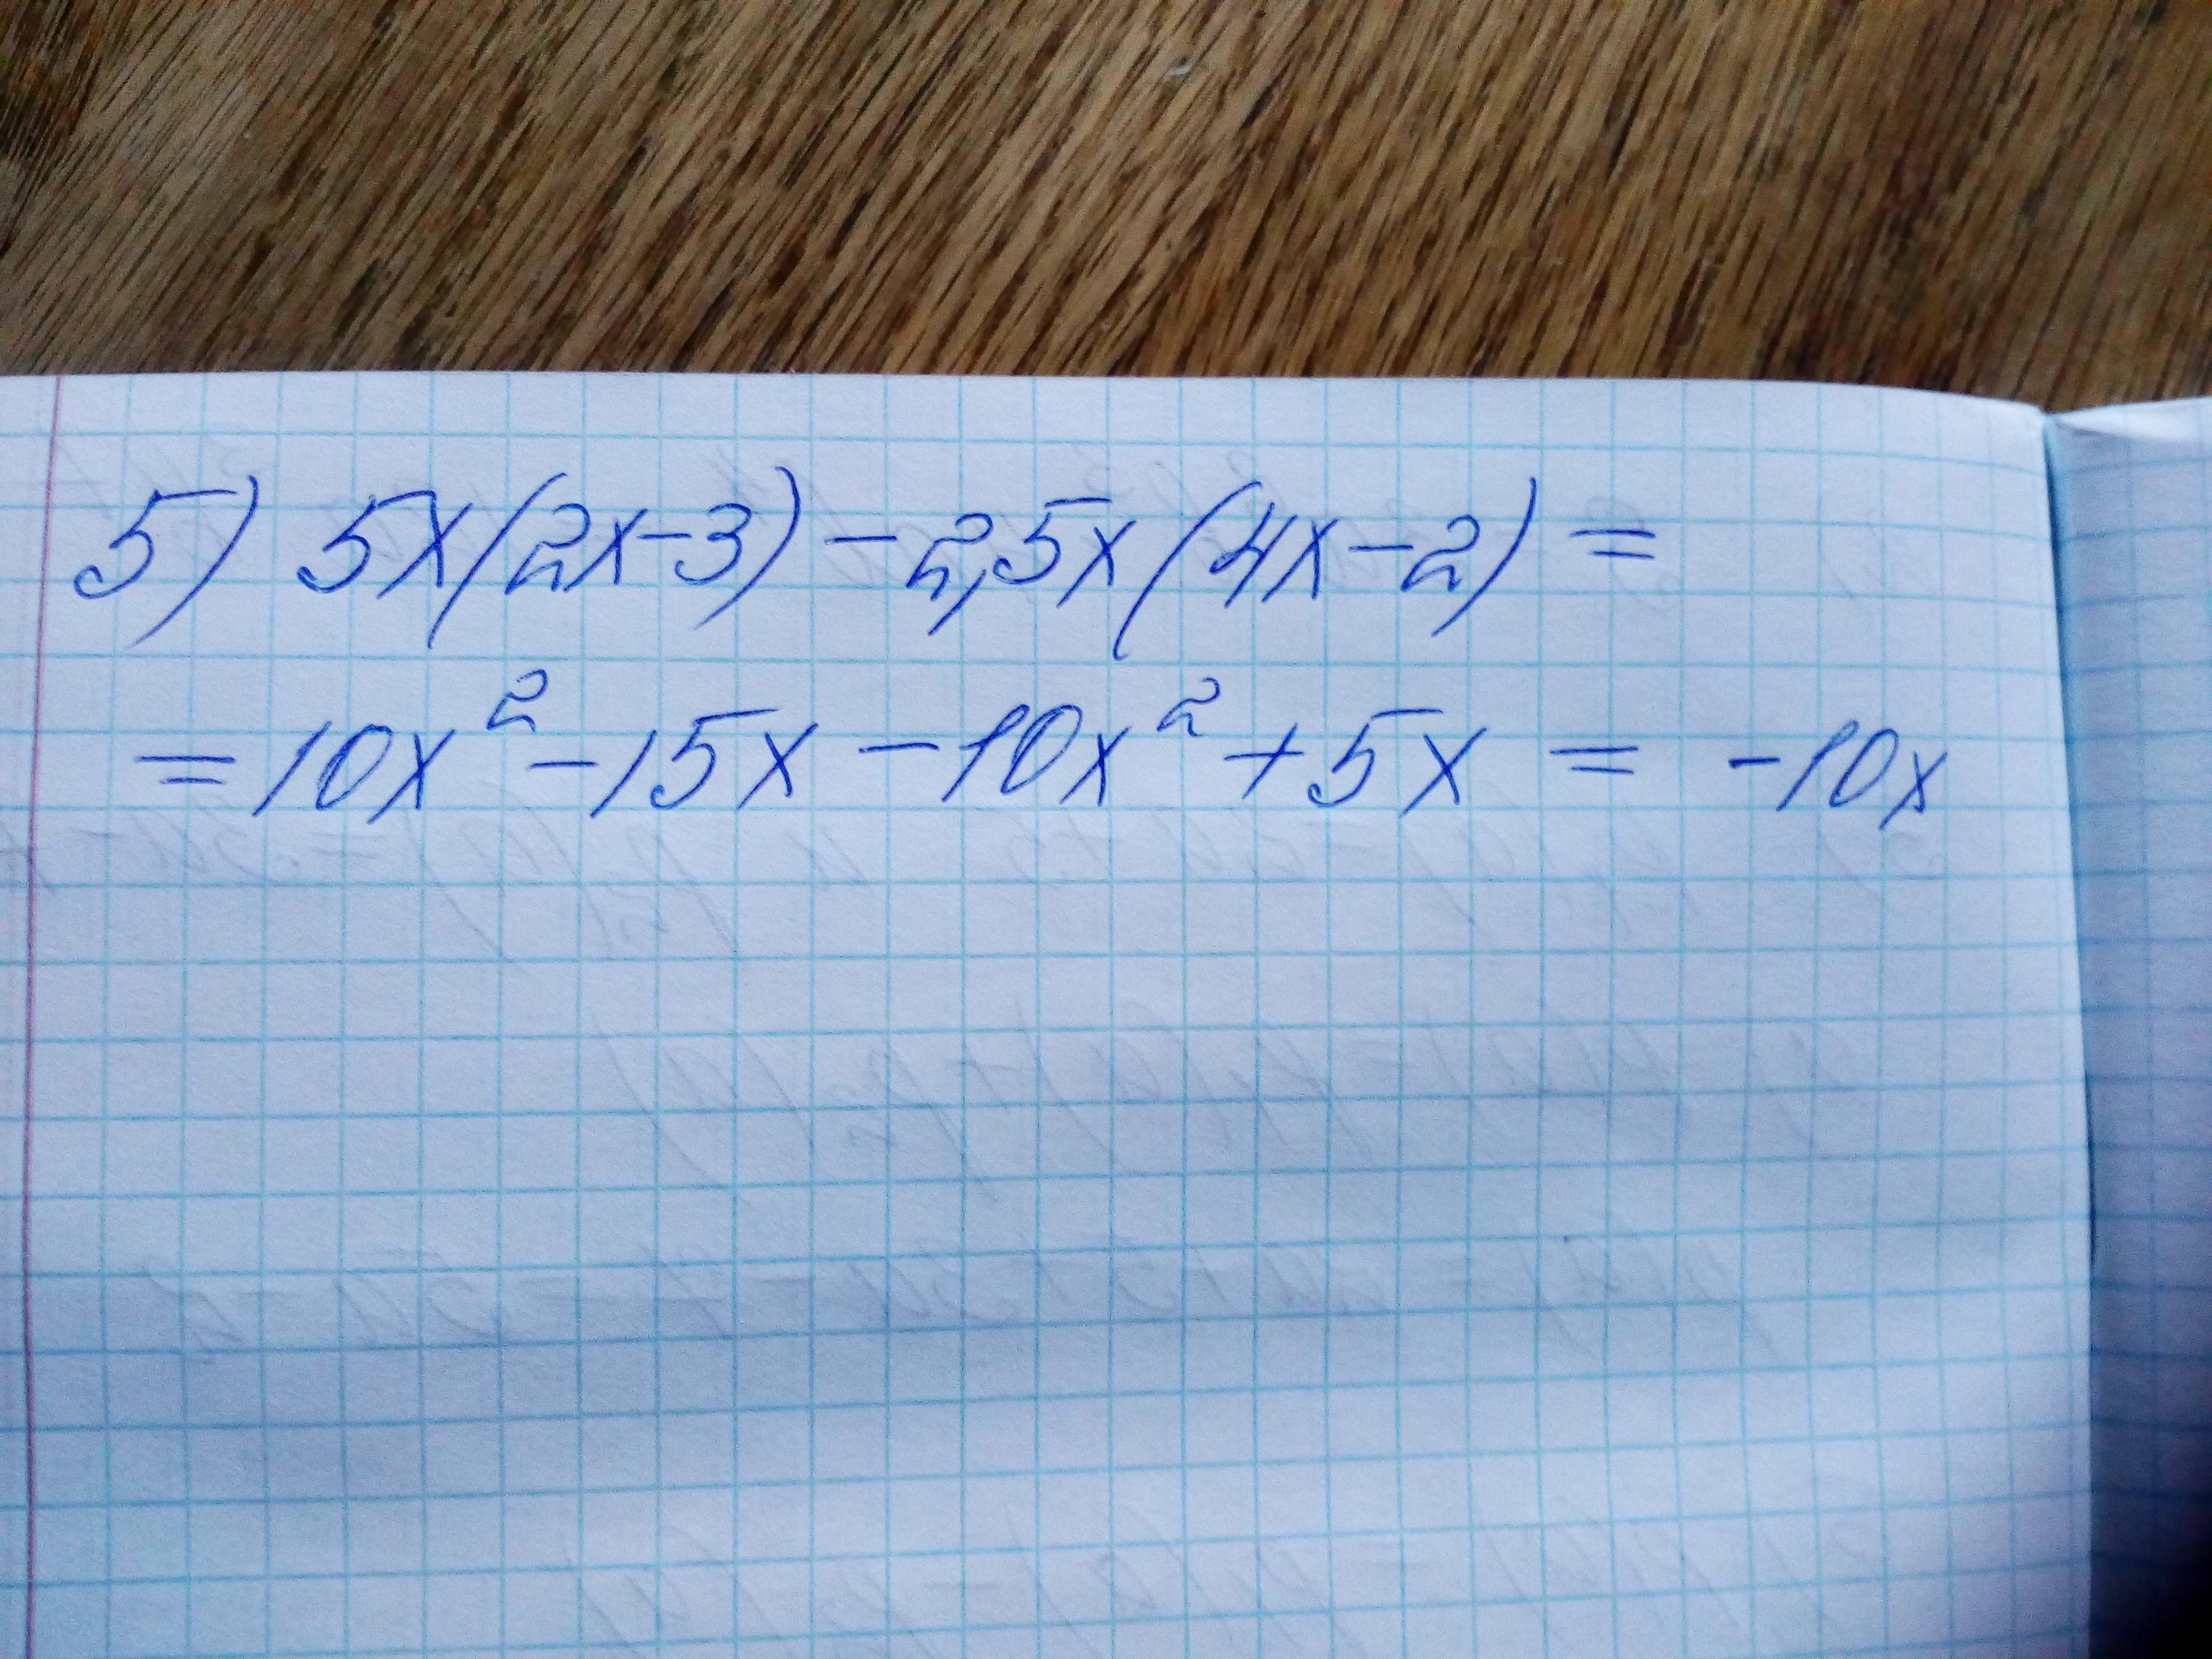 5) 5x(2x-3)-2,5x(4x-2)=
=10x²-15x-10x²+5x=-10x